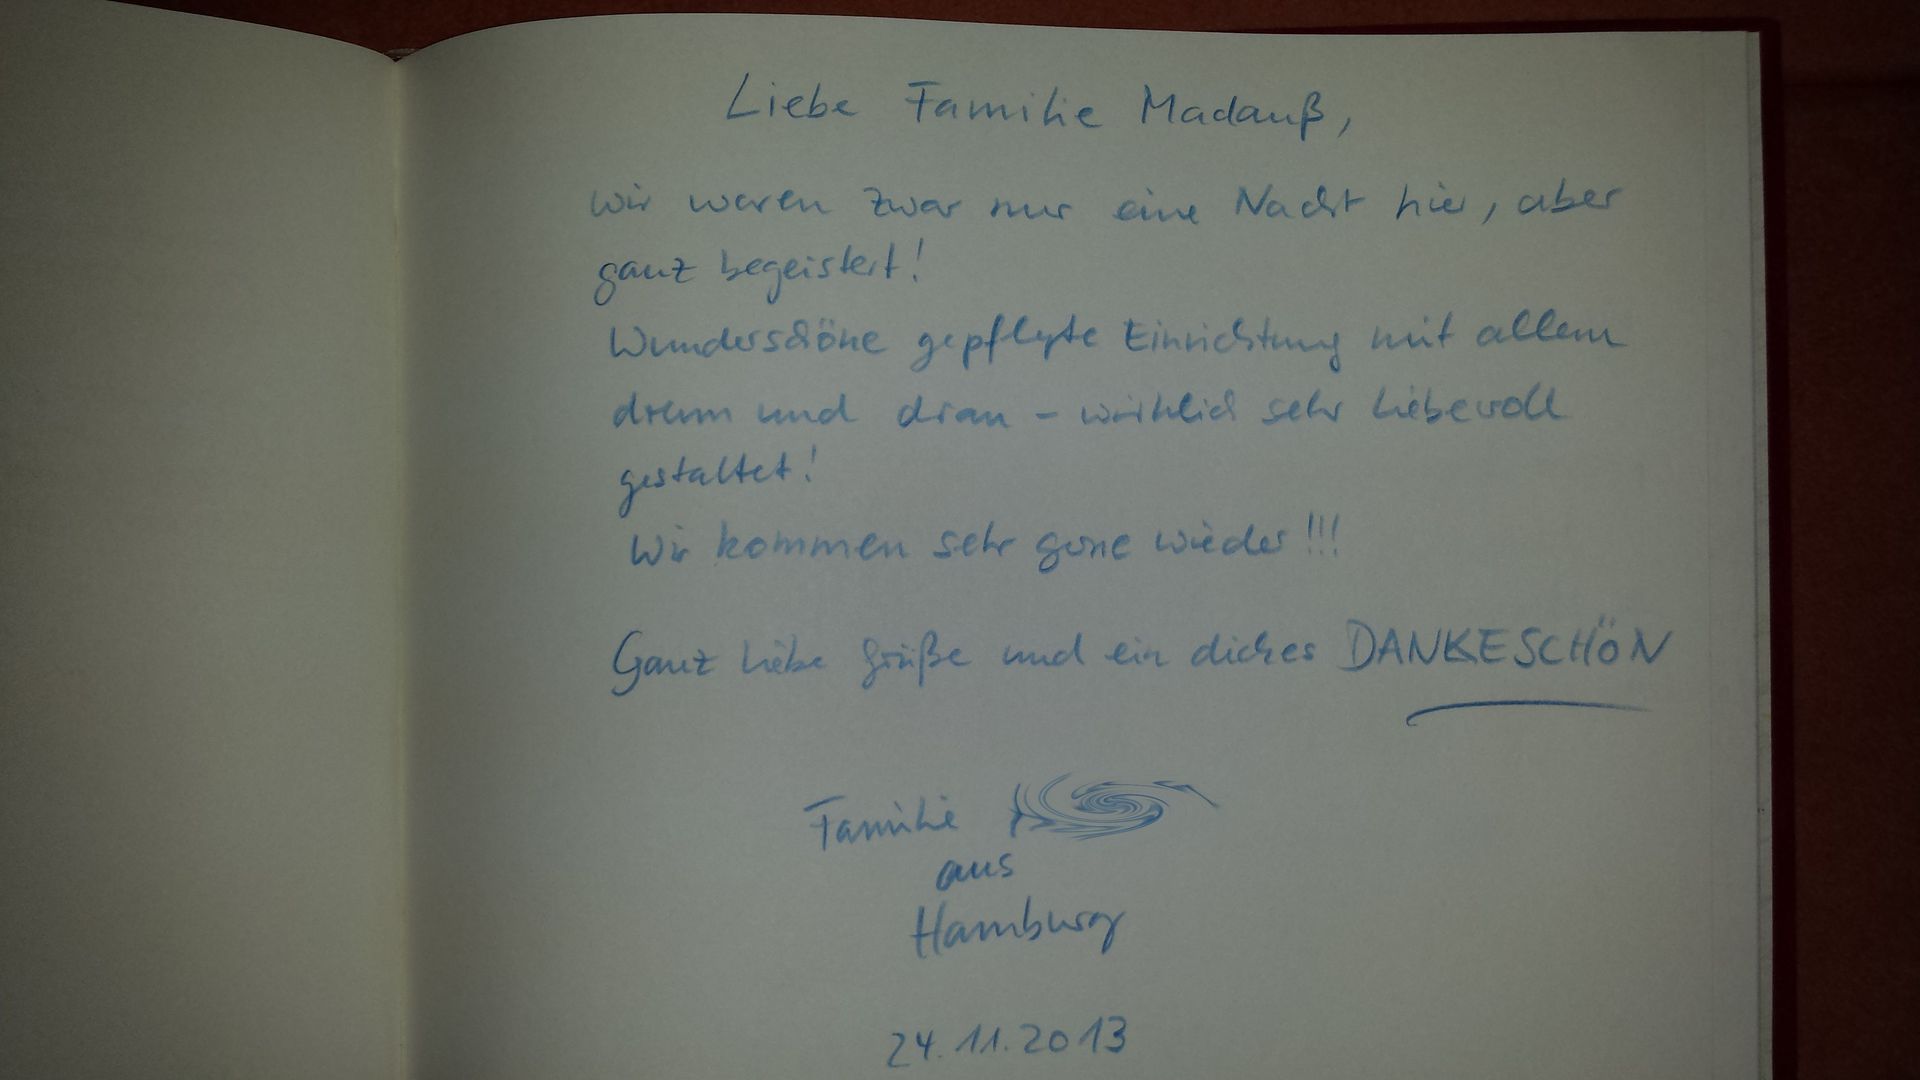 Liebe Familie Madauß,
wir waren zwar nur eine Nacht hier, aber
ganz begeistert!
Wunderschöne gepflegte Einrichtung mit allem
drum und dran - wirklich sehr liebevoll
gestaltet!
Wir kommen sehr gerne wieder!!!
Ganz liebe Grüße und ein dickes DANKESCHÖN
Familie
aus
Hamburg
24.11.2013